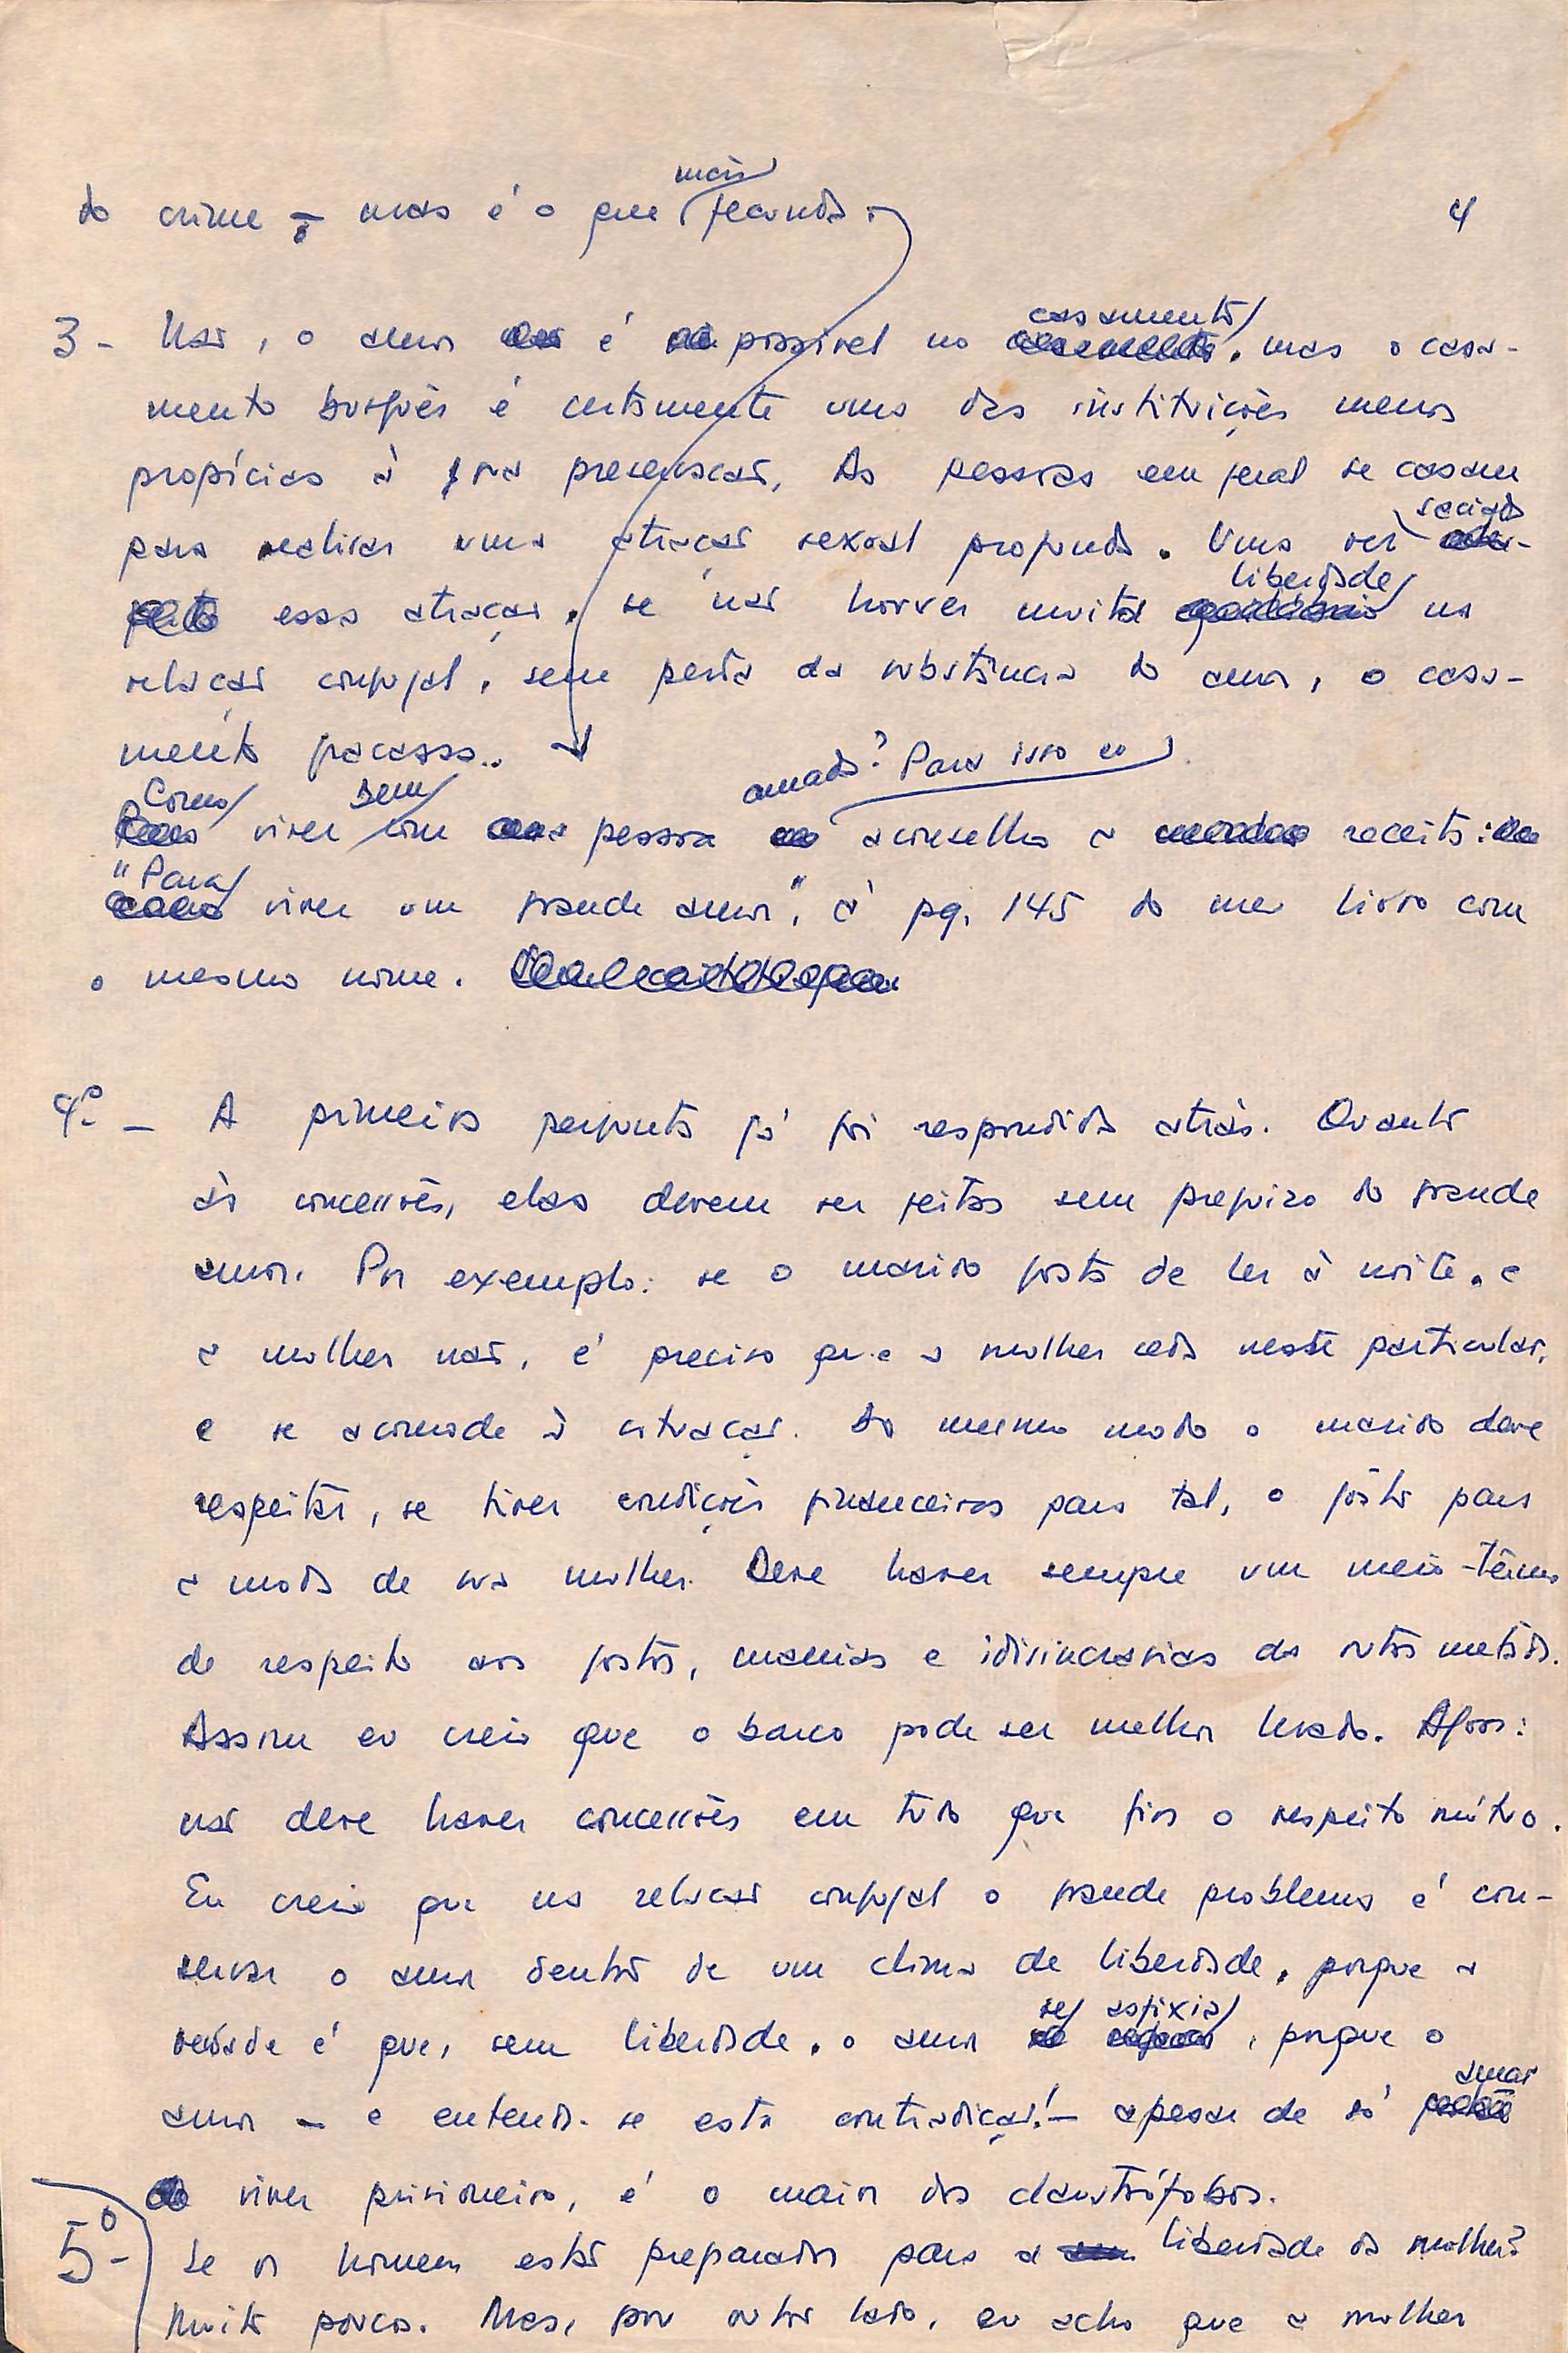 do crime – mas é o que mais fecunda.
4
3 - Não, o amor é possível no casamento, mas o casa-
mento burguês é certamente uma das instituições menos
propícias à sua preservação. As pessoas em geral se casam
para realizar uma atração sexual profunda. Uma vez saciada
essa atração, se não houver muita liberdade na
relação conjugal, sem perda da substância do amor, o casa-
mento fracassa..
Como viver sem pessoa amada? Para isso eu aconselho a receita:
"Para viver um grande amor", à pg. 145 do meu livro com
o mesmo nome.
4º - A primeira pergunta já foi respondida atrás. Quanto
às concessões, elas devem ser feitas sem prejuízo do grande
amor. Por exemplo: se o marido gosta de ler à noite, e
a mulher não, é preciso que a mulher ceda neste particular,
e se acomode à situação. Do mesmo modo o marido deve
respeitar, se tiver condições financeiras para tal, o gôsto para
a moda de sua mulher. Deve haver sempre um meio-têrmo
de respeito aos gostos, manias e idisincrasias da outra metade.
Assim eu creio que o barco pode ser melhor levado. Agora:
não deve haver concessões em tudo que fira o respeito mútuo.
Eu creio que na relação conjugal o grande problema é con-
servar o amor dentro de um clima de liberdade, porque a
verdade é que, sem liberdade, o amor se asfixia, porque o
amor – e entenda-se esta contradição! – apesar de só amar
viver prisioneiro, é o maior dos claustrófobos.
5º - Se os homens estão preparados para a liberdade da mulher?
Muito poucos. Mas, por outro lado, eu acho que a mulher